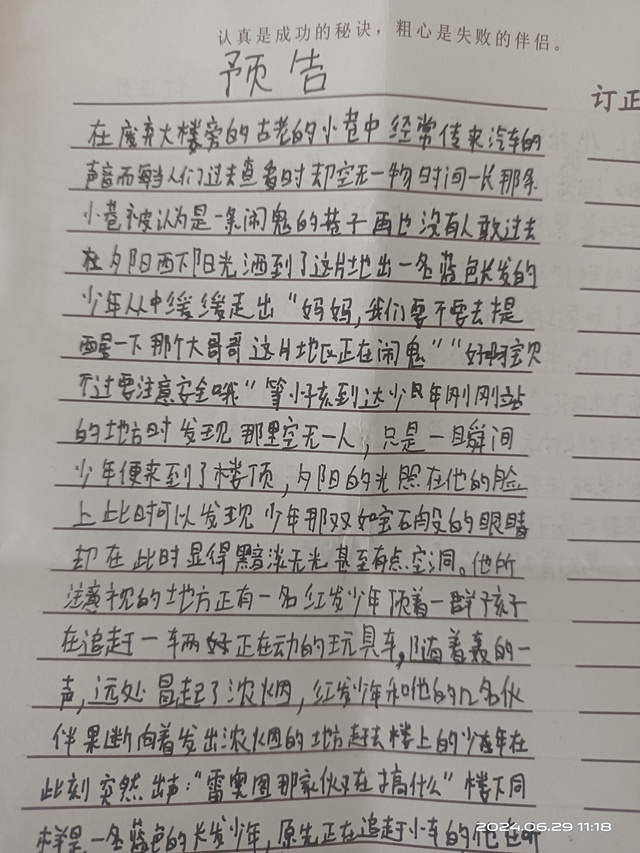 认真是成功的秘诀，粗心是失败的伴侣。
预告
订正
在废弃大楼旁的古老的小巷中经常传来汽车的
声音而每当人们过去查看时却空无一物时间一长那条
小巷被认为是一条闹鬼的巷子再也没有人敢过去
在夕阳西下阳光洒到了这片地出一名蓝色长发的
少年从中缓缓走出“妈妈，我们要不要去提
醒一下那个大哥哥这片地区正在闹鬼”“好啊宝贝
不过要注意安全哦”等小孩到达少年刚刚站
的地方时发现那里空无一人，只是一瞬间
少年便来到了楼顶，夕阳的光照在他的脸
上此时可以发现少年那双如宝石般的眼睛
却在此时显得黯淡无光甚至有点空洞。他所
注意视的地方正有一名红发少年领着一群孩子
在追赶一车两好正在动的玩具车，随着轰的一
声，远处冒起了浓烟，红发少年和他的几名伙
伴果断向着发出浓烟的地方赶去楼上的少年在
此刻突然出声：“雷奥图那家伙又在搞什么”楼下同
样是一名蓝色的长发少年，原先正在追赶小车的他在听
2024.06.29 11:18